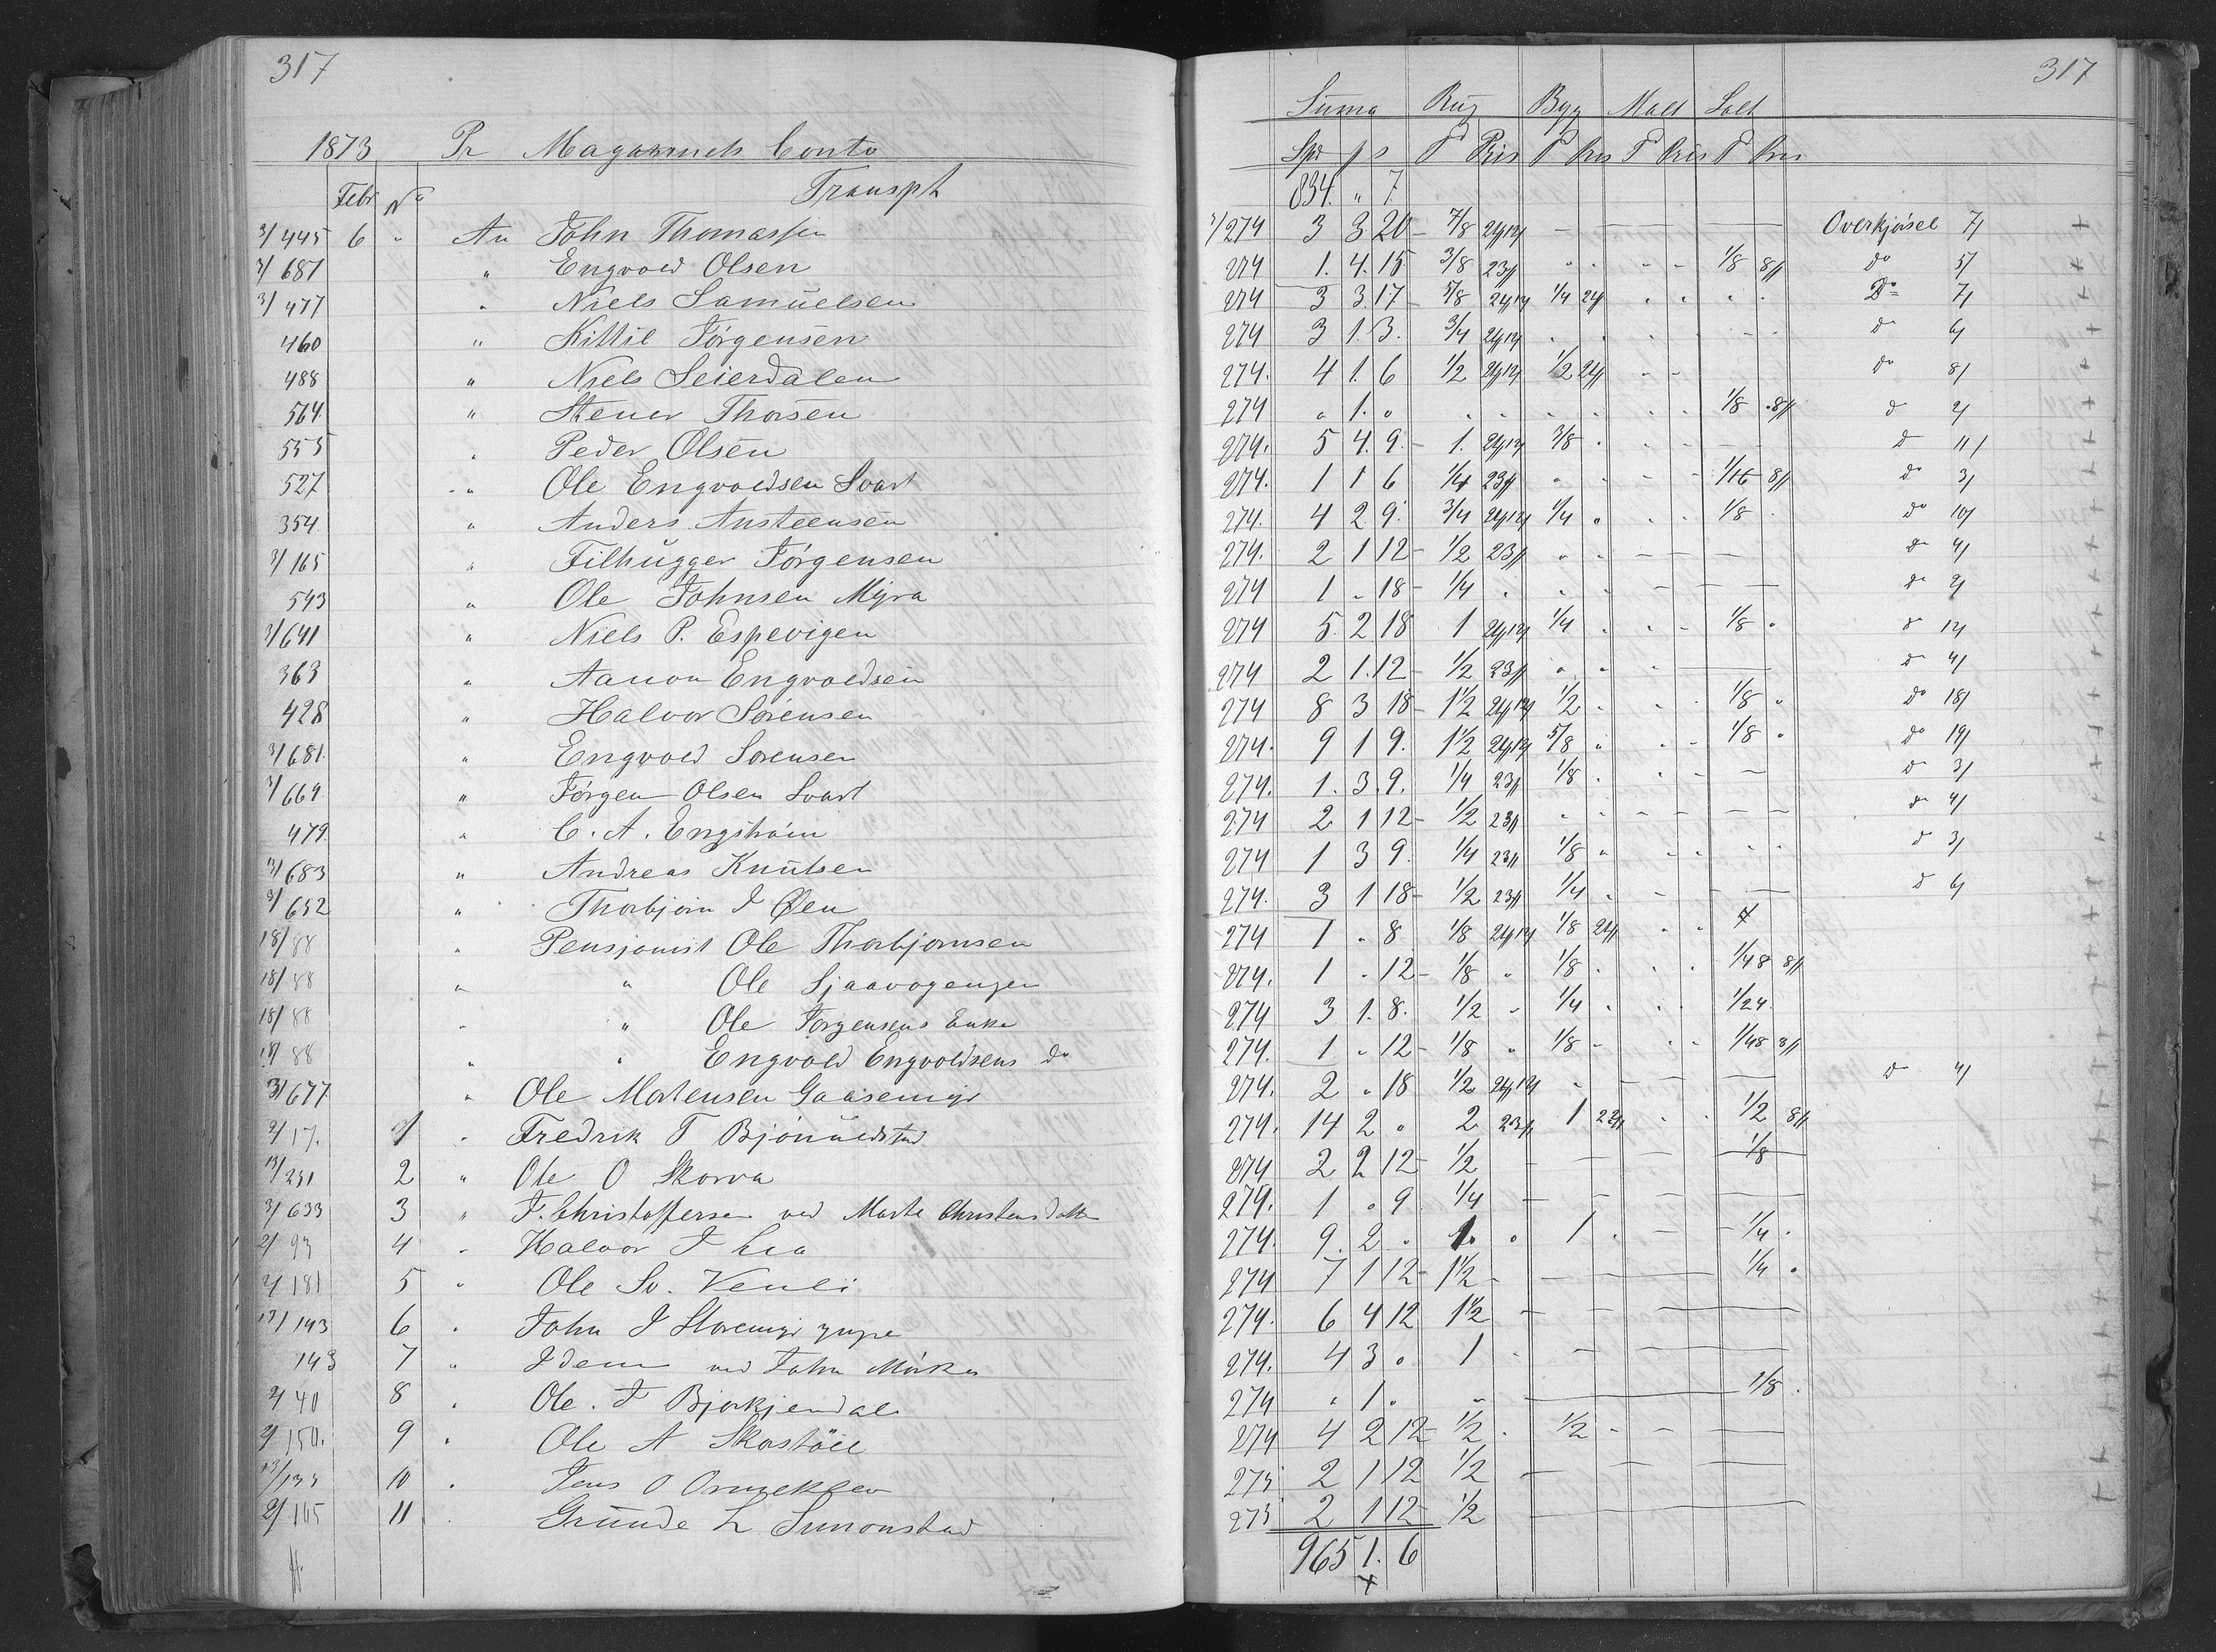 317
1873 Pr Magazinets Conto
Febr No Transpt
3/445 6 " An John Thomassen
3/687 " Engvold Olsen
3/477 " Niels Samuelsen
460 " Kittil Jörgensen
488 " Niels Seierdalen
564 " Stener Thorsen
555 " Peder Olsen
527 " Ole Engvoldsen Svart
354 " Anders Austeensen
3/165 " Filhugger Jörgensen
543 " Ole Johnsen Myra
3/641 " Niels P. Espevigen
363 " Aanon Engvoldsen
428 " Halvor Sörensen
3/681 " Engvold Sörensen
3/669 " Jörgen Olsen Svart
479 " C. A. Engström
3/683 " Andreas Knutsen
3/652 " Thorbjörn J Öen
18/88 " Pensjonist Ole Thorbjornsen
18/88 " " Ole
18/88 " " Ole Jorgensens Enke
18/88 " " Engvold Engvoldsens do
3/677 " Ole Mortensen Gaasemyr
2/17. 1 " Fredrik T
13/251 2 " Ole O Skorva
3/633 3 " F. Christoffersen ved Marte Christensdatter
2/93 4 " Halvor J Lia
2/181 5 " Ole Sv. Venli
13/143 6 " John J
143 7 " Idem ved John
2/40 8 " Ole. J Bjorkjendal
2/150. 9 " Ole A Skorstöil
13/133 10 " Jens O
2/165 11 " Grunde L Simonstad
317
Suma Rug Byg Malt Salt
Spd ß s T Pris T Pris T Pris T Pris
834. " 7.
3/274 3 3 20 7/8 Overkjörsel 7/
274 1. 4. 15 3/8 23ß 1/8 8ß do 5/
274 3 3 17 5/8 1/4 24ß Do 7/
274 3 1. 3. 3/4 do 6/
274. 4 1. 6 1/2 1/2 24ß do 8/
274 " 1. " 1/8 8ß do 2/
274. 5 4. 9. 1. 3/8 do 11/
274. 1 1 6 1/4 23ß 1/16 8ß do 3/
274. 4 2 9. 3/4 1/4 " 1/8 do 10/
274. 2 1 12 1/2 23ß do 4/
274 1 " 18 1/4 do 2/
274 5. 2 18 1 1/4 1/8 " do 12
274 2 1. 12 1/2 23ß do 4/
274 8 3 18 1 1/2 1/2 1/8 " do 18/
274. 9 1 9. 1 1/2 5/8 1/8 " do 19/
274. 1. 3. 9. 1/4 23ß 1/8 do 3/
274 2 1 12 1/2 23ß do 4/
274 1 3 9. 1/4 23ß 1/8 do 3/
274. 3 1 18 1/2 23ß 1/4 do 6/
274 1 " 8 1/8 1/8 24ß
274. 1 " 12 1/8 " 1/8 1/48 8ß
274 3 1. 8. 1/2 " 1/4 1/24
274. 1 " 12 1/8 " 1/8 1/48 8ß
274. 2 " 18 1/2 do 4/
274. 14 2 " 2 23ß 1 22ß 1/2 8ß
274 2 2 12 1/2 1/8
274. 1 " 9 1/4
274. 9. 2. " 1. " 1 1/4
274 7 1 12 1 1/2 1/4 "
274. 6 4 12 1 1/2
274. 4 3 " 1
274 " 1. " 1/8
274 4 2 12 1/2 1/2
275 2 1 12 1/2
275 2 1 12 1/2
965 1. 6